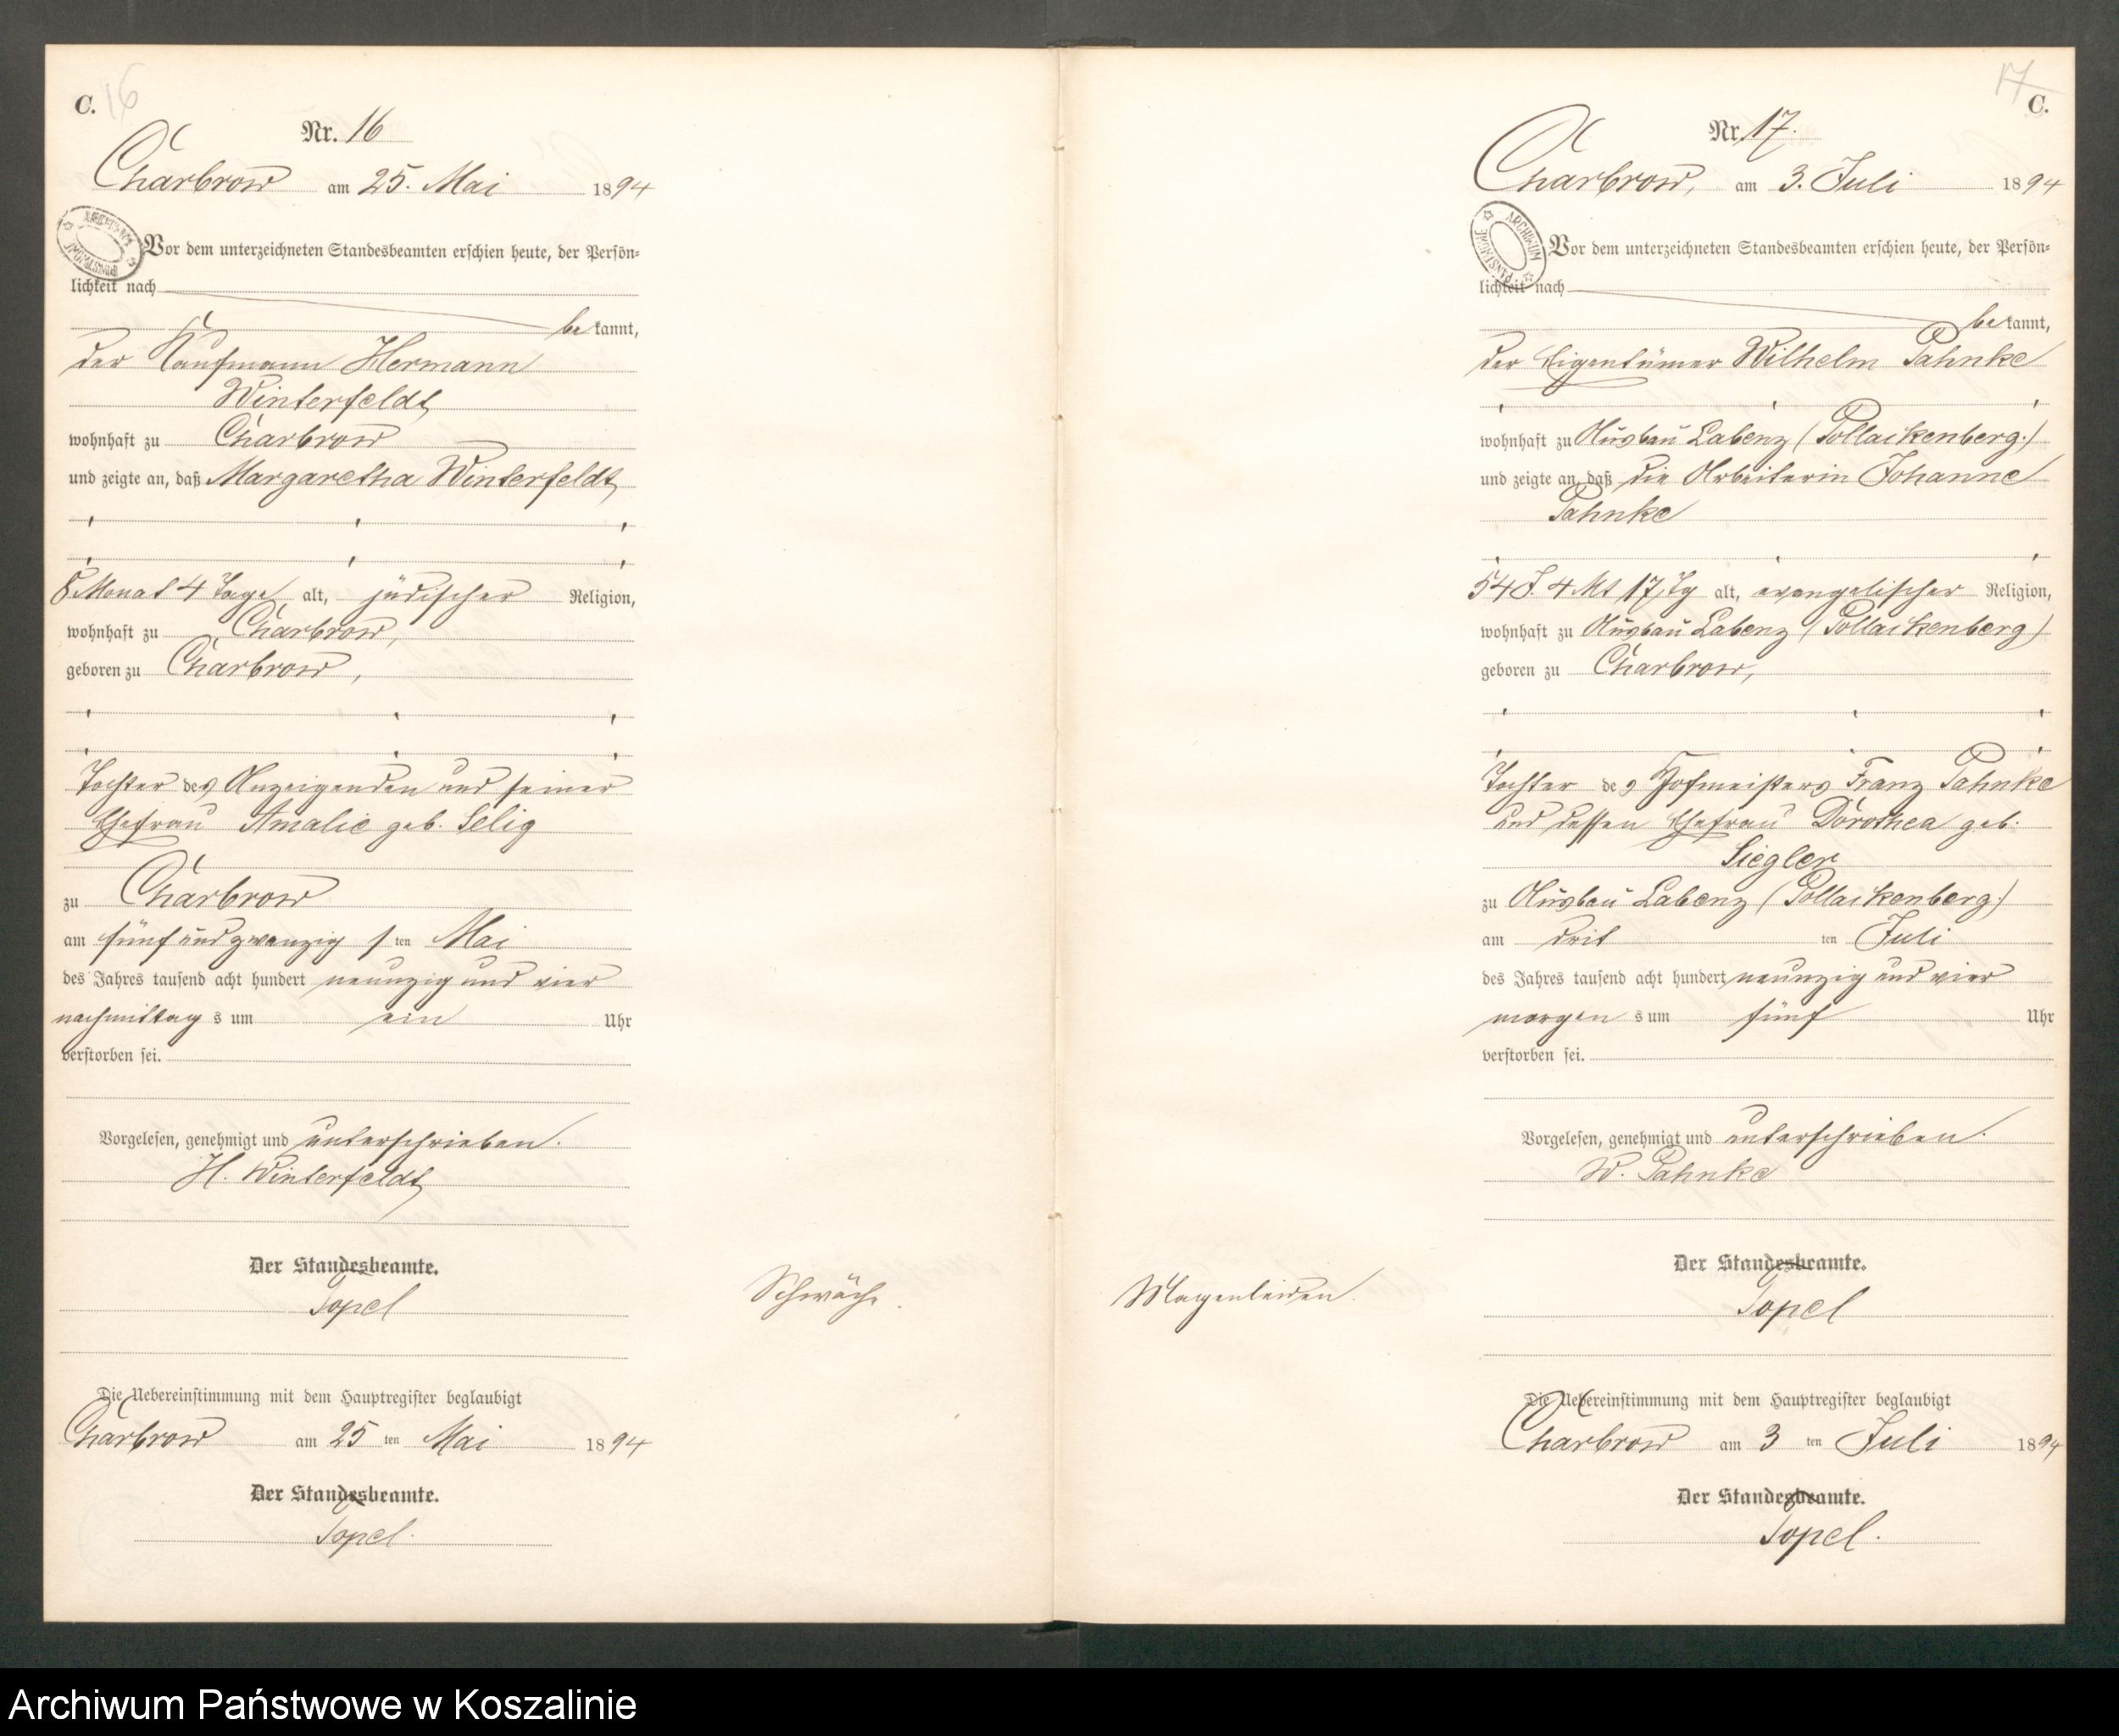 C. 16
Nr. 16
Charbrow am 25. Mai 1894
ARCHIWUM PAŃSTWOWE
Vor dem unterzeichneten Standesbeamten erschien heute, der Persön-
lichkeit nach
be kannt,
der Kaufmann Hermann
Winterfeldt
wohnhaft zu Charbrow
und zeigte an, daß Margaretha Winterfeldt
8 Monat 4 Tage alt, jüdischer Religion,
wohnhaft zu Charbrow,
geboren zu Charbrow,
Tochter des Anzeigenden und seiner
Ehefrau Amalie geb. Selig
zu Charbrow
am fünf und zwanzigsten Mai
des Jahres tausend acht hundert neunzig und vier
nachmittag s um ein Uhr
verstorben sei.
Vorgelesen, genehmigt und unterschrieben.
H. Winterfeldt
Der Standesbeamte.
Topel
Schwäche.
Die Uebereinstimmung mit dem Hauptregister beglaubigt
Charbrow am 25 ten Mai 1894
Der Standesbeamte.
Topel.
17
C.
Nr. 17.
Charbrow, am 3. Juli 1894
ARCHIWUM PAŃSTWOWE
Vor dem unterzeichneten Standesbeamten erschien heute, der Persön-
lichkeit nach
be kannt,
der Eigentümer Wilhelm Pahnke
wohnhaft zu Ausbau Labenz (Pollackenberg.)
und zeigte an, daß die Arbeiterin Johanne
Pahnke
54 J. 4 Mt 17 Tg alt, evangelischer Religion,
wohnhaft zu Ausbau Labenz (Pollackenberg)
geboren zu Charbrow,
Tochter des Hofmeisters Franz Pahnke
und dessen Ehefrau Dorothea geb.
Siegler
zu Ausbau Labenz (Pollackenberg)
am drit ten Juli
des Jahres tausend acht hundert neunzig und vier
morgen s um fünf Uhr
verstorben sei.
Vorgelesen, genehmigt und unterschrieben.
W. Pahnke
Der Standesbeamte.
Topel
Magenleiden.
Die Uebereinstimmung mit dem Hauptregister beglaubigt
Charbrow am 3 ten Juli 1894
Der Standesbeamte.
Topel.
Archiwum Państwowe w Koszalinie